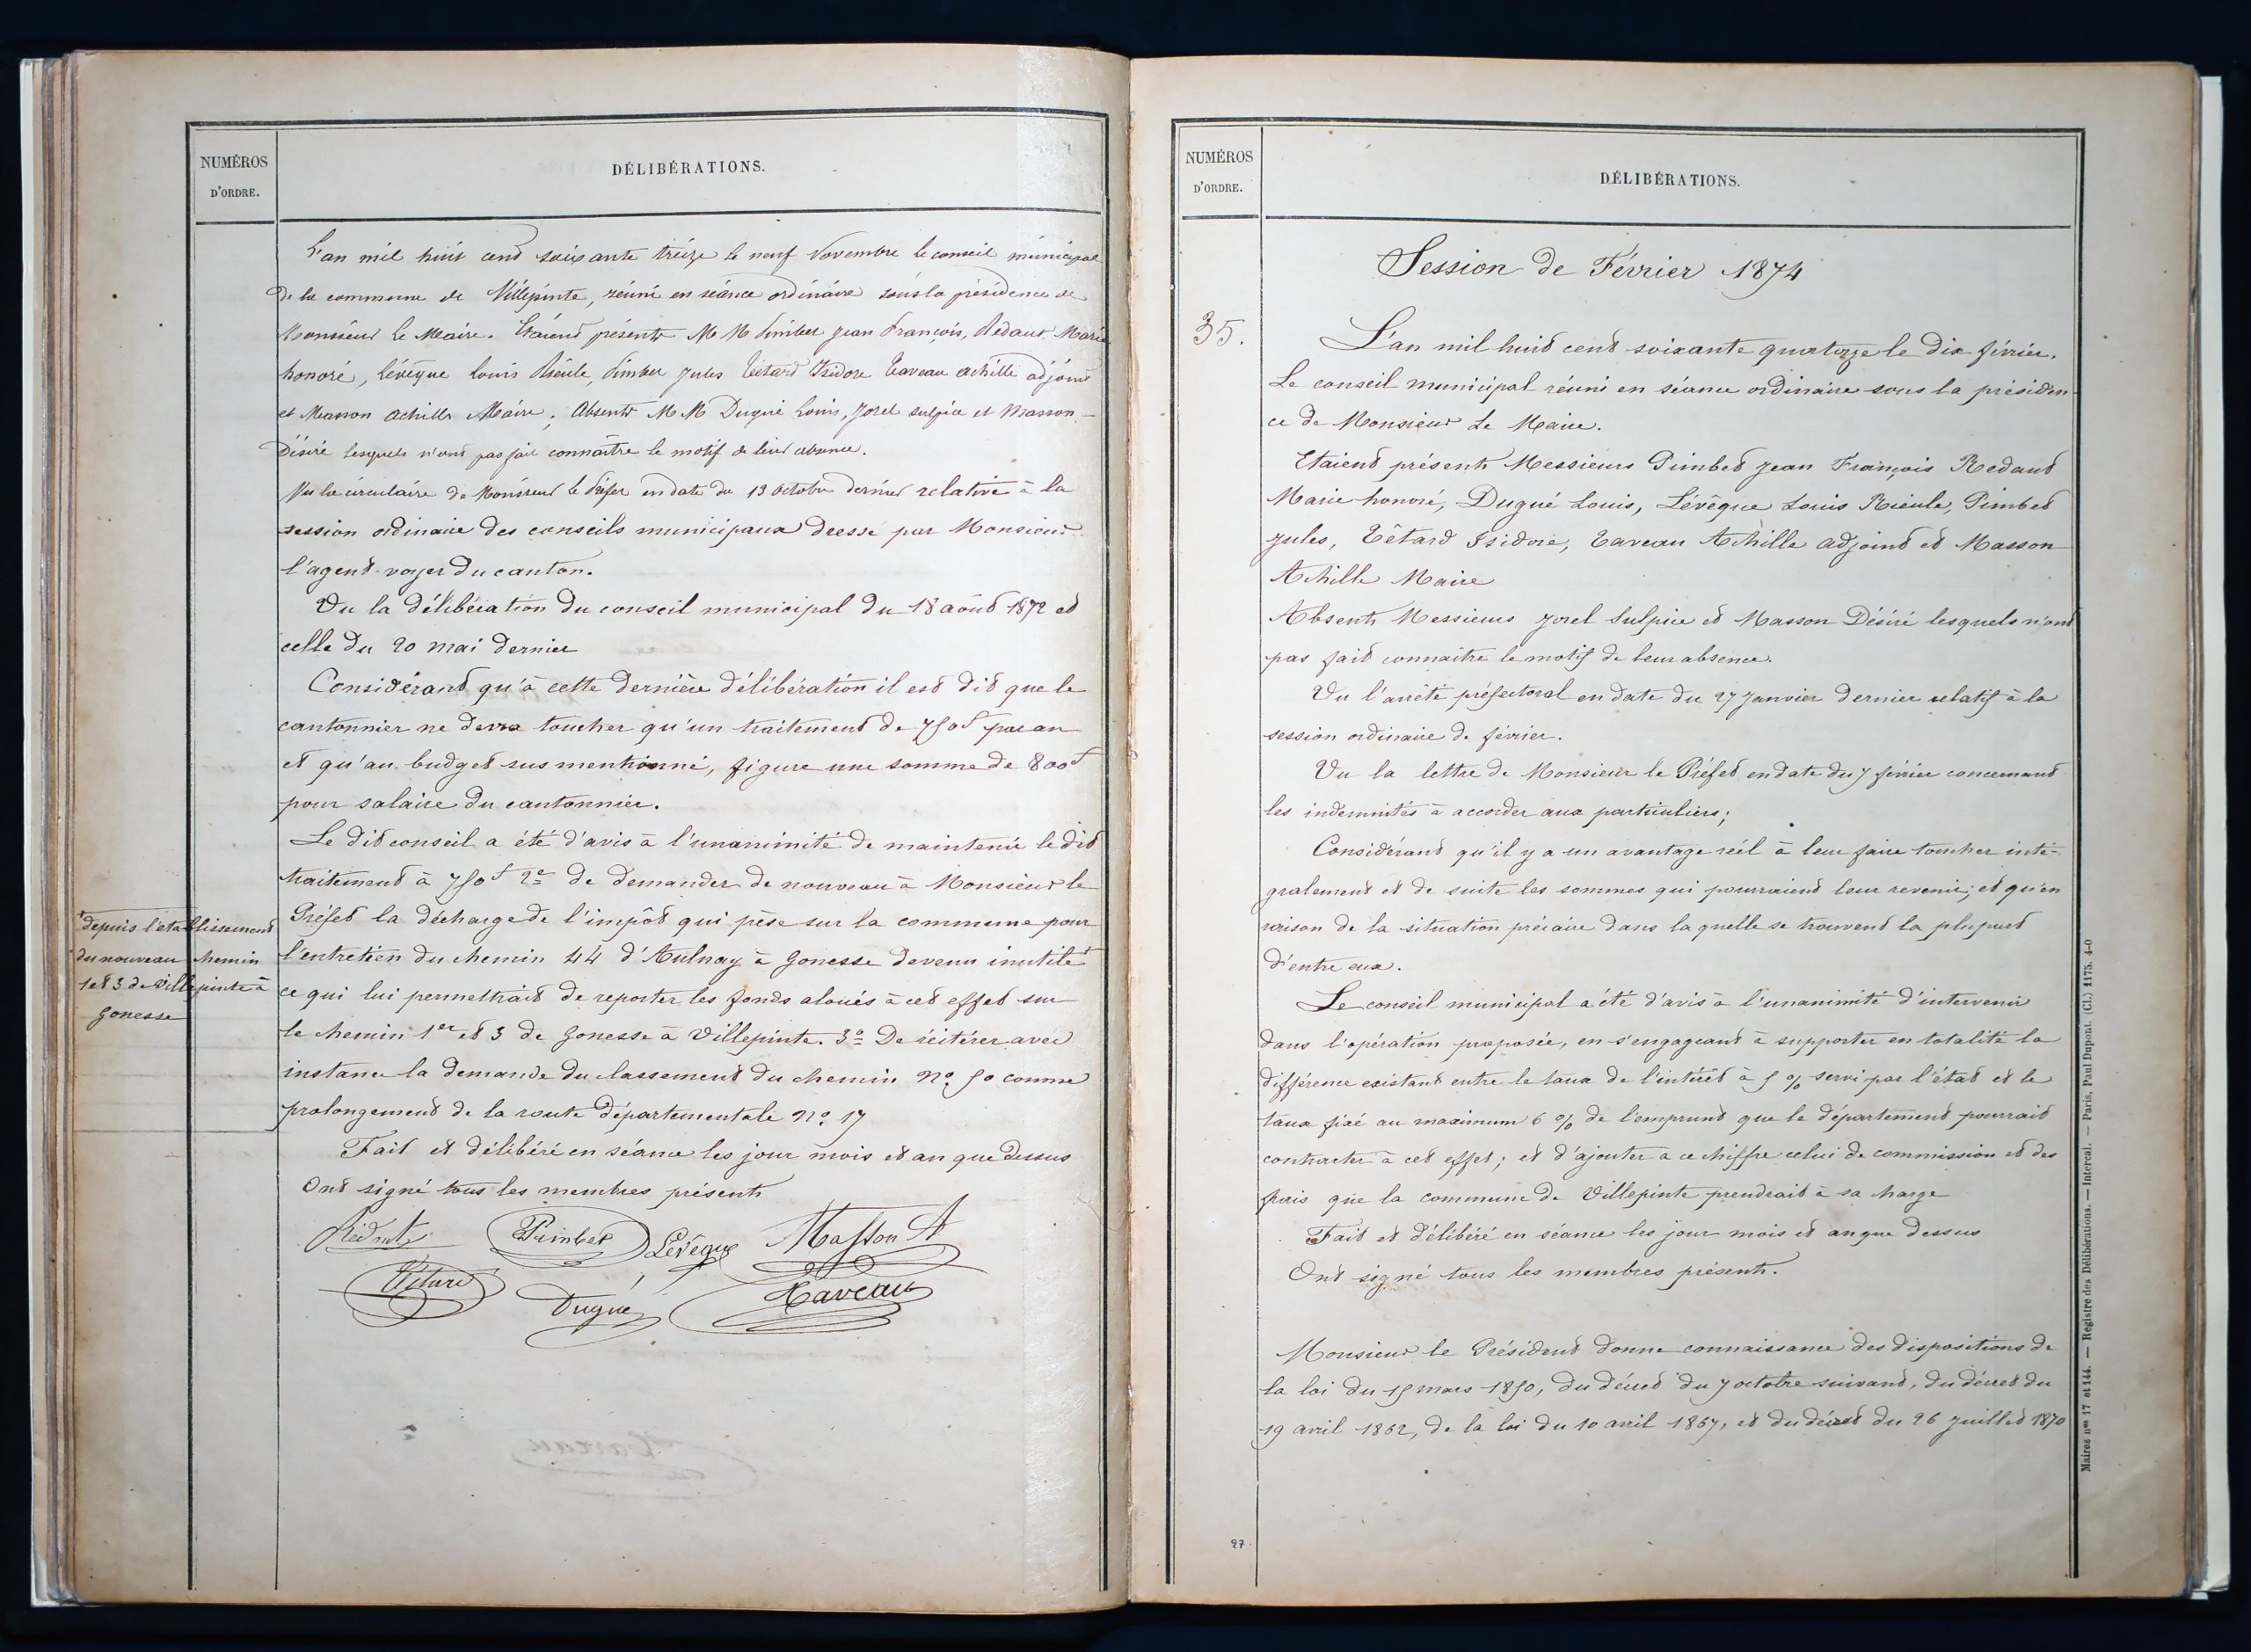 NUMÉROS
D'ORDRE.
DÉLIBÉRATIONS.
L'an mil huit cent soixante treize le neuf Novembre le conseil municipal
de la commune de Villepinte, réuni en séance ordinaire sous la présidence de
Monsieur Le Maire. Etaient présents M M Pimbet Jean François, Redaut Marie
honoré, Lévêque Louis Rieule, Pimbet Jules Tétard Isidore Taveau Achille adjoint
et Masson Achille Maire; Absents M M Dugué Louis, Jorel sulpice et Masson
Désiré lesquels n'ont pas fait connaître le motif de leur absence.
Vu la circulaire de Monsieur le Préfet en date du 13 octobre dernier relative à la
session ordinaire des conseils municipaux dressé par Monsieur
l'agent-voyer du canton.
Vu la délibération du conseil municipal du 18 août 1872 et
celle du 20 mai dernier
Considérant qu'à cette dernière délibération il est dit que le
cantonnier ne devra toucher qu'un traitement de 750f par an
et qu'au budget sus mentionné, figure une somme de 800f
pour salaire du cantonnier.
Le dit conseil a été d'avis à l'unanimité de maintenir le dit
traitement à 750f 2e de demander de nouveau à Monsieur le
Préfet la décharge de l'impôt qui pèse sur la commune pour
l'entretien du chemin 44 d'Aulnay à Gonesse devenu inutile +
ce qui lui permettrait de reporter les fonds aloués à cet effet sur
le chemin 1er et 3 de Gonesse à Villepinte. 3o De réitérer avec
instance la demande du classement du chemin No 50 comme
prolongement de la route départementale No 17
Fait et délibéré en séance les jour mois et an que dessus
Ont signé tous les membres présents
+ depuis l'établissement
du nouveau chemin
1 et 3 de Villepinte à
Gonesse
Redaut Pimbet Lévêque Masson A
Tétard Dugué Taveau
NUMÉROS
D'ORDRE.
DÉLIBÉRATIONS.
Session de Février 1874
35.
L'an mil huit cent soixante quatorze le dix février.
Le conseil municipal réuni en séance ordinaire sous la présiden-
ce de Monsieur Le Maire.
Etaient présents Messieurs Pimbet Jean François Redaut
Marie honoré, Dugué Louis, Lévêque Louis Rieule, Pimbet
Jules, Tétard Isidore, Taveau Achille adjoint et Masson
Achille Maire
Absents Messieurs Jorel Sulpice et Masson Désiré lesquels n'ont
pas fait connaître le motif de leur absence.
Vu l'arrêté préfectoral en date du 27 Janvier dernier relatif à la
session ordinaire de février.
Vu la lettre de Monsieur le Préfet en date du 7 février concernant
les indemnités à accorder aux particuliers;
Considérant qu'il y a un avantage réel à leur faire toucher inté-
gralement et de suite les sommes qui pourraient leur revenir; et qu'en
raison de la situation précaire dans laquelle se trouvent la plupart
d'entre eux.
Le conseil municipal a été d'avis à l'unanimité d'intervenir
dans l'opération proposée, en s'engageant à supporter en totalité la
différence existant entre le taux de l'intérêt à 5 % servi par l'état et le
taux fixé au maximum 6 % de l'emprunt que le département pourrait
contracter à cet effet; et d'ajouter à ce chiffre celui de commission et des
frais que la commune de Villepinte prendrait à sa charge
Fait et délibéré en séance les jour mois et an que dessus
Ont signé tous les membres présents.
Monsieur le Président donne connaissance des dispositions de
la loi du 15 mars 1850, du décret du 7 octobre suivant, du décret du
19 avril 1862, de la loi du 10 avril 1867, et du décret du 26 juillet 1870
27.
Maires nos 17 et 144. — Registre des Délibérations. — Intercal. — Paris, Paul Dupont. (Cl.) 1175. 4-0